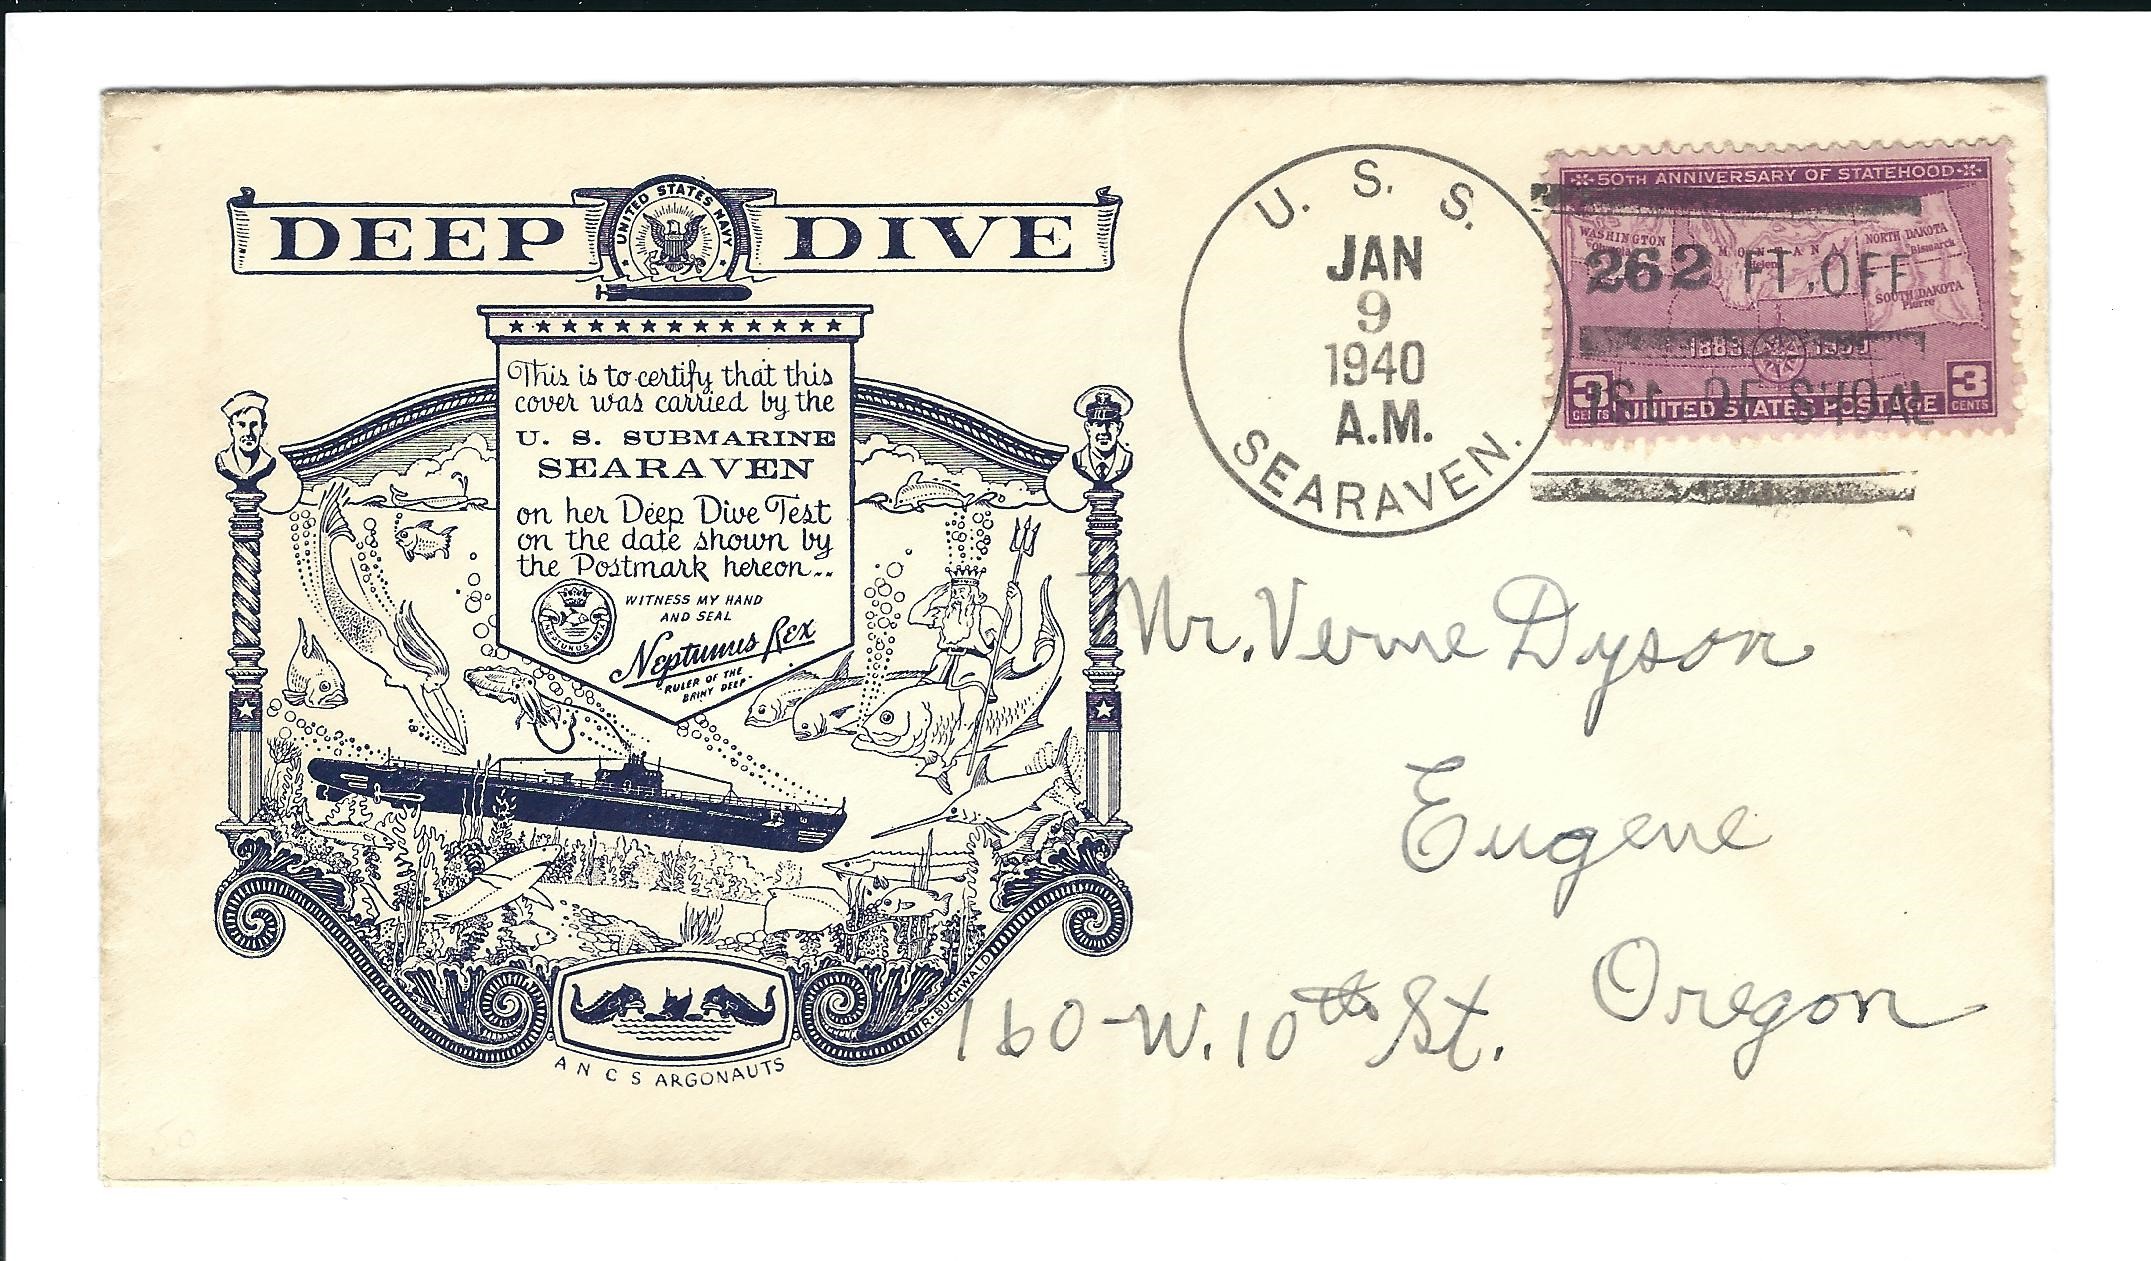 DEEP DIVE
UNITED STATES NAVY
This is to certify that this
cover was carried by the
U. S. SUBMARINE
SEARAVEN
on her Deep Dive Test
on the date shown by
the Postmark hereon...
WITNESS MY HAND
AND SEAL
NEPTUNUS REX
Neptunus Rex
RULER OF THE
BRINY DEEP
R. BUCHWALD
A N C S ARGONAUTS
U. S. S.
JAN
9
1940
A.M.
SEARAVEN.
50TH ANNIVERSARY OF STATEHOOD
WASHINGTON
Olympia
MONTANA
Helena
NORTH DAKOTA
Bismarck
SOUTH DAKOTA
Pierre
1889 1939
3 CENTS UNITED STATES POSTAGE 3 CENTS
262 FT. OFF
ISL OF SHOAL
Mr. Verne Dyson
Eugene
Oregon
160-W. 10th St.